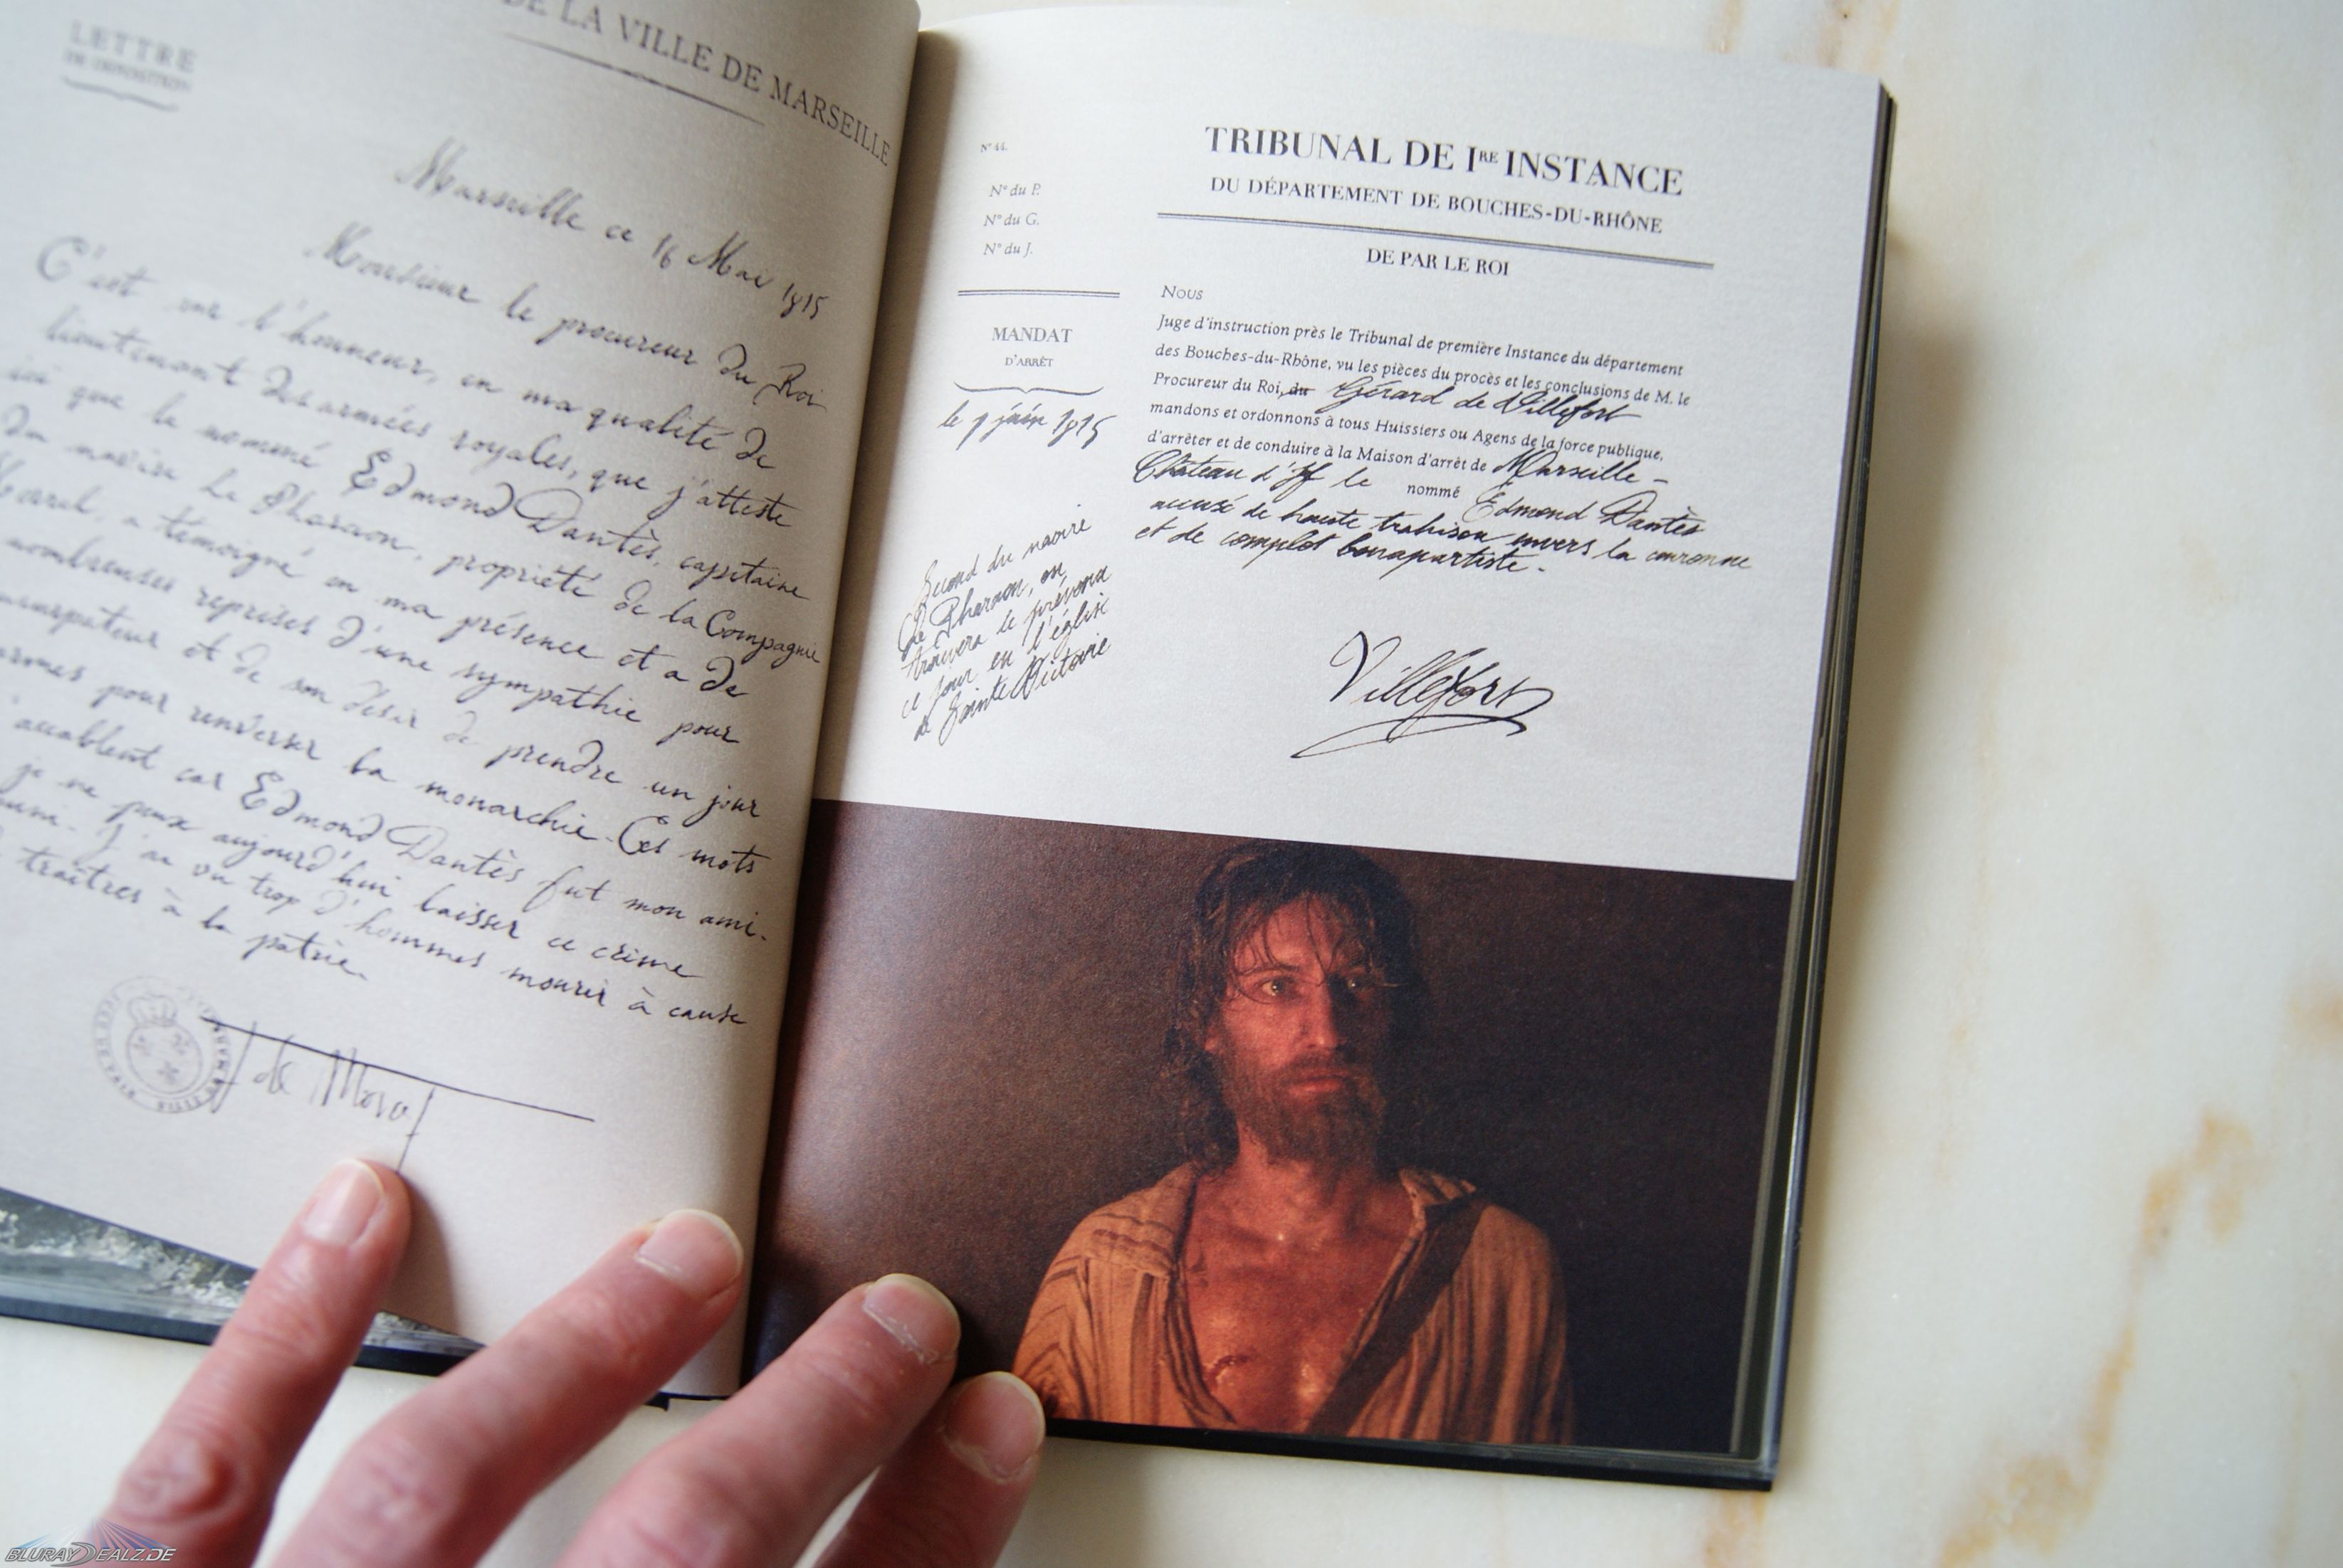 LETTRE
DE DÉPOSITION
DE LA VILLE DE MARSEILLE
Marseille ce 16 Mai 1815
Monsieur le procureur du Roi
C'est sur l'honneur, en ma qualité de
lieutenant des armées royales, que j'atteste
ici que le nommé Edmond Dantès, capitaine
du navire Le Pharaon, propriété de la Compagnie
Morrel, a témoigné en ma présence et a de
nombreuses reprises d'une sympathie pour
et de son désir de prendre un jour
armes pour renverser la monarchie. Ces mots
accablent car Edmond Dantès fut mon ami.
je ne peux aujourd'hui laisser ce crime
J'ai vu trop d'hommes mourir à cause
traîtres à la patrie.
de Morcerf
N° 44.
N° du P.
N° du G.
N° du J.
MANDAT
D'ARRÊT
le 9 juin 1815
Second du navire
Le Pharaon, on
trouvera le prévenu
ce jour en l'église
de Sainte Victoire
TRIBUNAL DE IRE INSTANCE
DU DÉPARTEMENT DE BOUCHES-DU-RHÔNE
DE PAR LE ROI
NOUS
Juge d'instruction près le Tribunal de première Instance du département
des Bouches-du-Rhône, vu les pièces du procès et les conclusions de M. le
Procureur du Roi, du Gérard de Villefort
mandons et ordonnons à tous Huissiers ou Agens de la force publique,
d'arrêter et de conduire à la Maison d'arrêt de Marseille -
Château d'If le nommé Edmond Dantès
accusé de haute trahison envers la couronne
et de complot bonapartiste.
Villefort
BLURAYDEALZ.DE